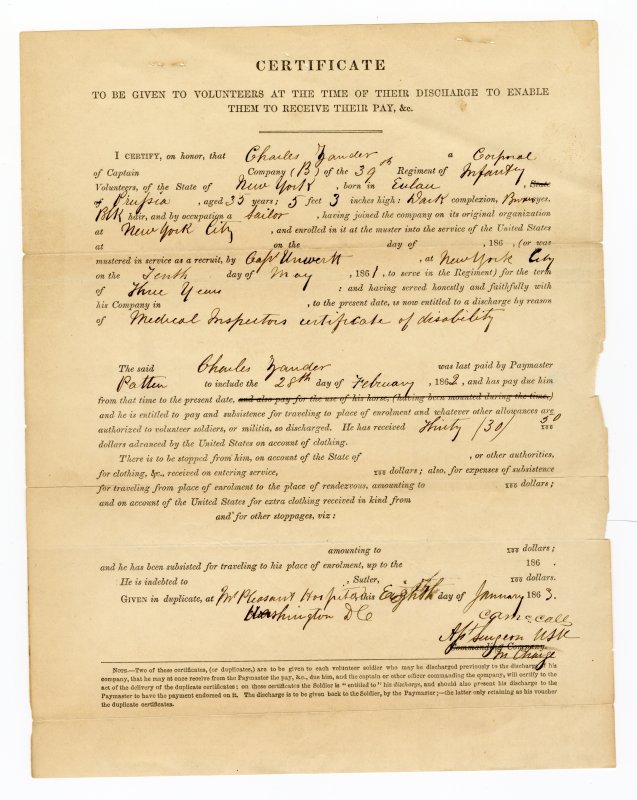 CERTIFICATE
TO BE GIVEN TO VOLUNTEERS AT THE TIME OF THEIR DISCHARGE TO ENABLE
THEM TO RECEIVE THEIR PAY, &c.
I CERTIFY, on honor, that Charles Zander a Corporal
of Captain Company (B) of the 39th Regiment of Infantry
Volunteers, of the State of New York, born in Eulau, State
of Prussia, aged 35 years; 5 feet 3 inches high: Dark complexion, Brown eyes,
Blk hair, and by occupation a Sailor, having joined the company on its original organization
at New York City, and enrolled in it at the muster into the service of the United States
at on the day of , 186 , (or was
mustered in service as a recruit, by Capt Unwerth, at New York City
on the Tenth day of May, 1861, to serve in the Regiment) for the term
of Three Years : and having served honestly and faithfully with
his Company in , to the present date, is now entitled to a discharge by reason
of Medical Inspectors certificate of disability
The said Charles Zander was last paid by Paymaster
Patten to include the 28th day of February, 1862, and has pay due him
from that time to the present date, and also pay for the use of his horse, (having been mounted during the time.)
and he is entitled to pay and subsistence for traveling to place of enrolment and whatever other allowances are
authorized to volunteer soldiers, or militia, so discharged. He has received Thirty (30) 50/100
dollars advanced by the United States on account of clothing.
There is to be stopped from him, on account of the State of , or other authorities,
for clothing, &c., received on entering service, /100 dollars; also, for expenses of subsistence
for traveling from place of enrolment to the place of rendezvous, amounting to /100 dollars;
and on account of the United States for extra clothing received in kind from
and for other stoppages, viz:
amounting to /100 dollars;
and he has been subsisted for traveling to his place of enrolment, up to the 186 .
He is indebted to , Sutler, /100 dollars.
GIVEN in duplicate, at Mt Pleasant Hospital this Eighth day of January 1863.
Washington DC
C A McCall
Ast Surgeon USA
Commanding Company.
In Charge
NOTE.—Two of these certificates, (or duplicates,) are to be given to each volunteer soldier who may be discharged previously to the discharge of his
company, that he may at once receive from the Paymaster the pay, &c., due him, and the captain or other officer commanding the company, will certify to the
act of the delivery of the duplicate certificates: on these certificates the Soldier is "entitled to" his discharge, and should also present his discharge to the
Paymaster to have the payment endorsed on it. The discharge is to be given back to the Soldier, by the Paymaster;—the latter only retaining as his voucher
the duplicate certificates.